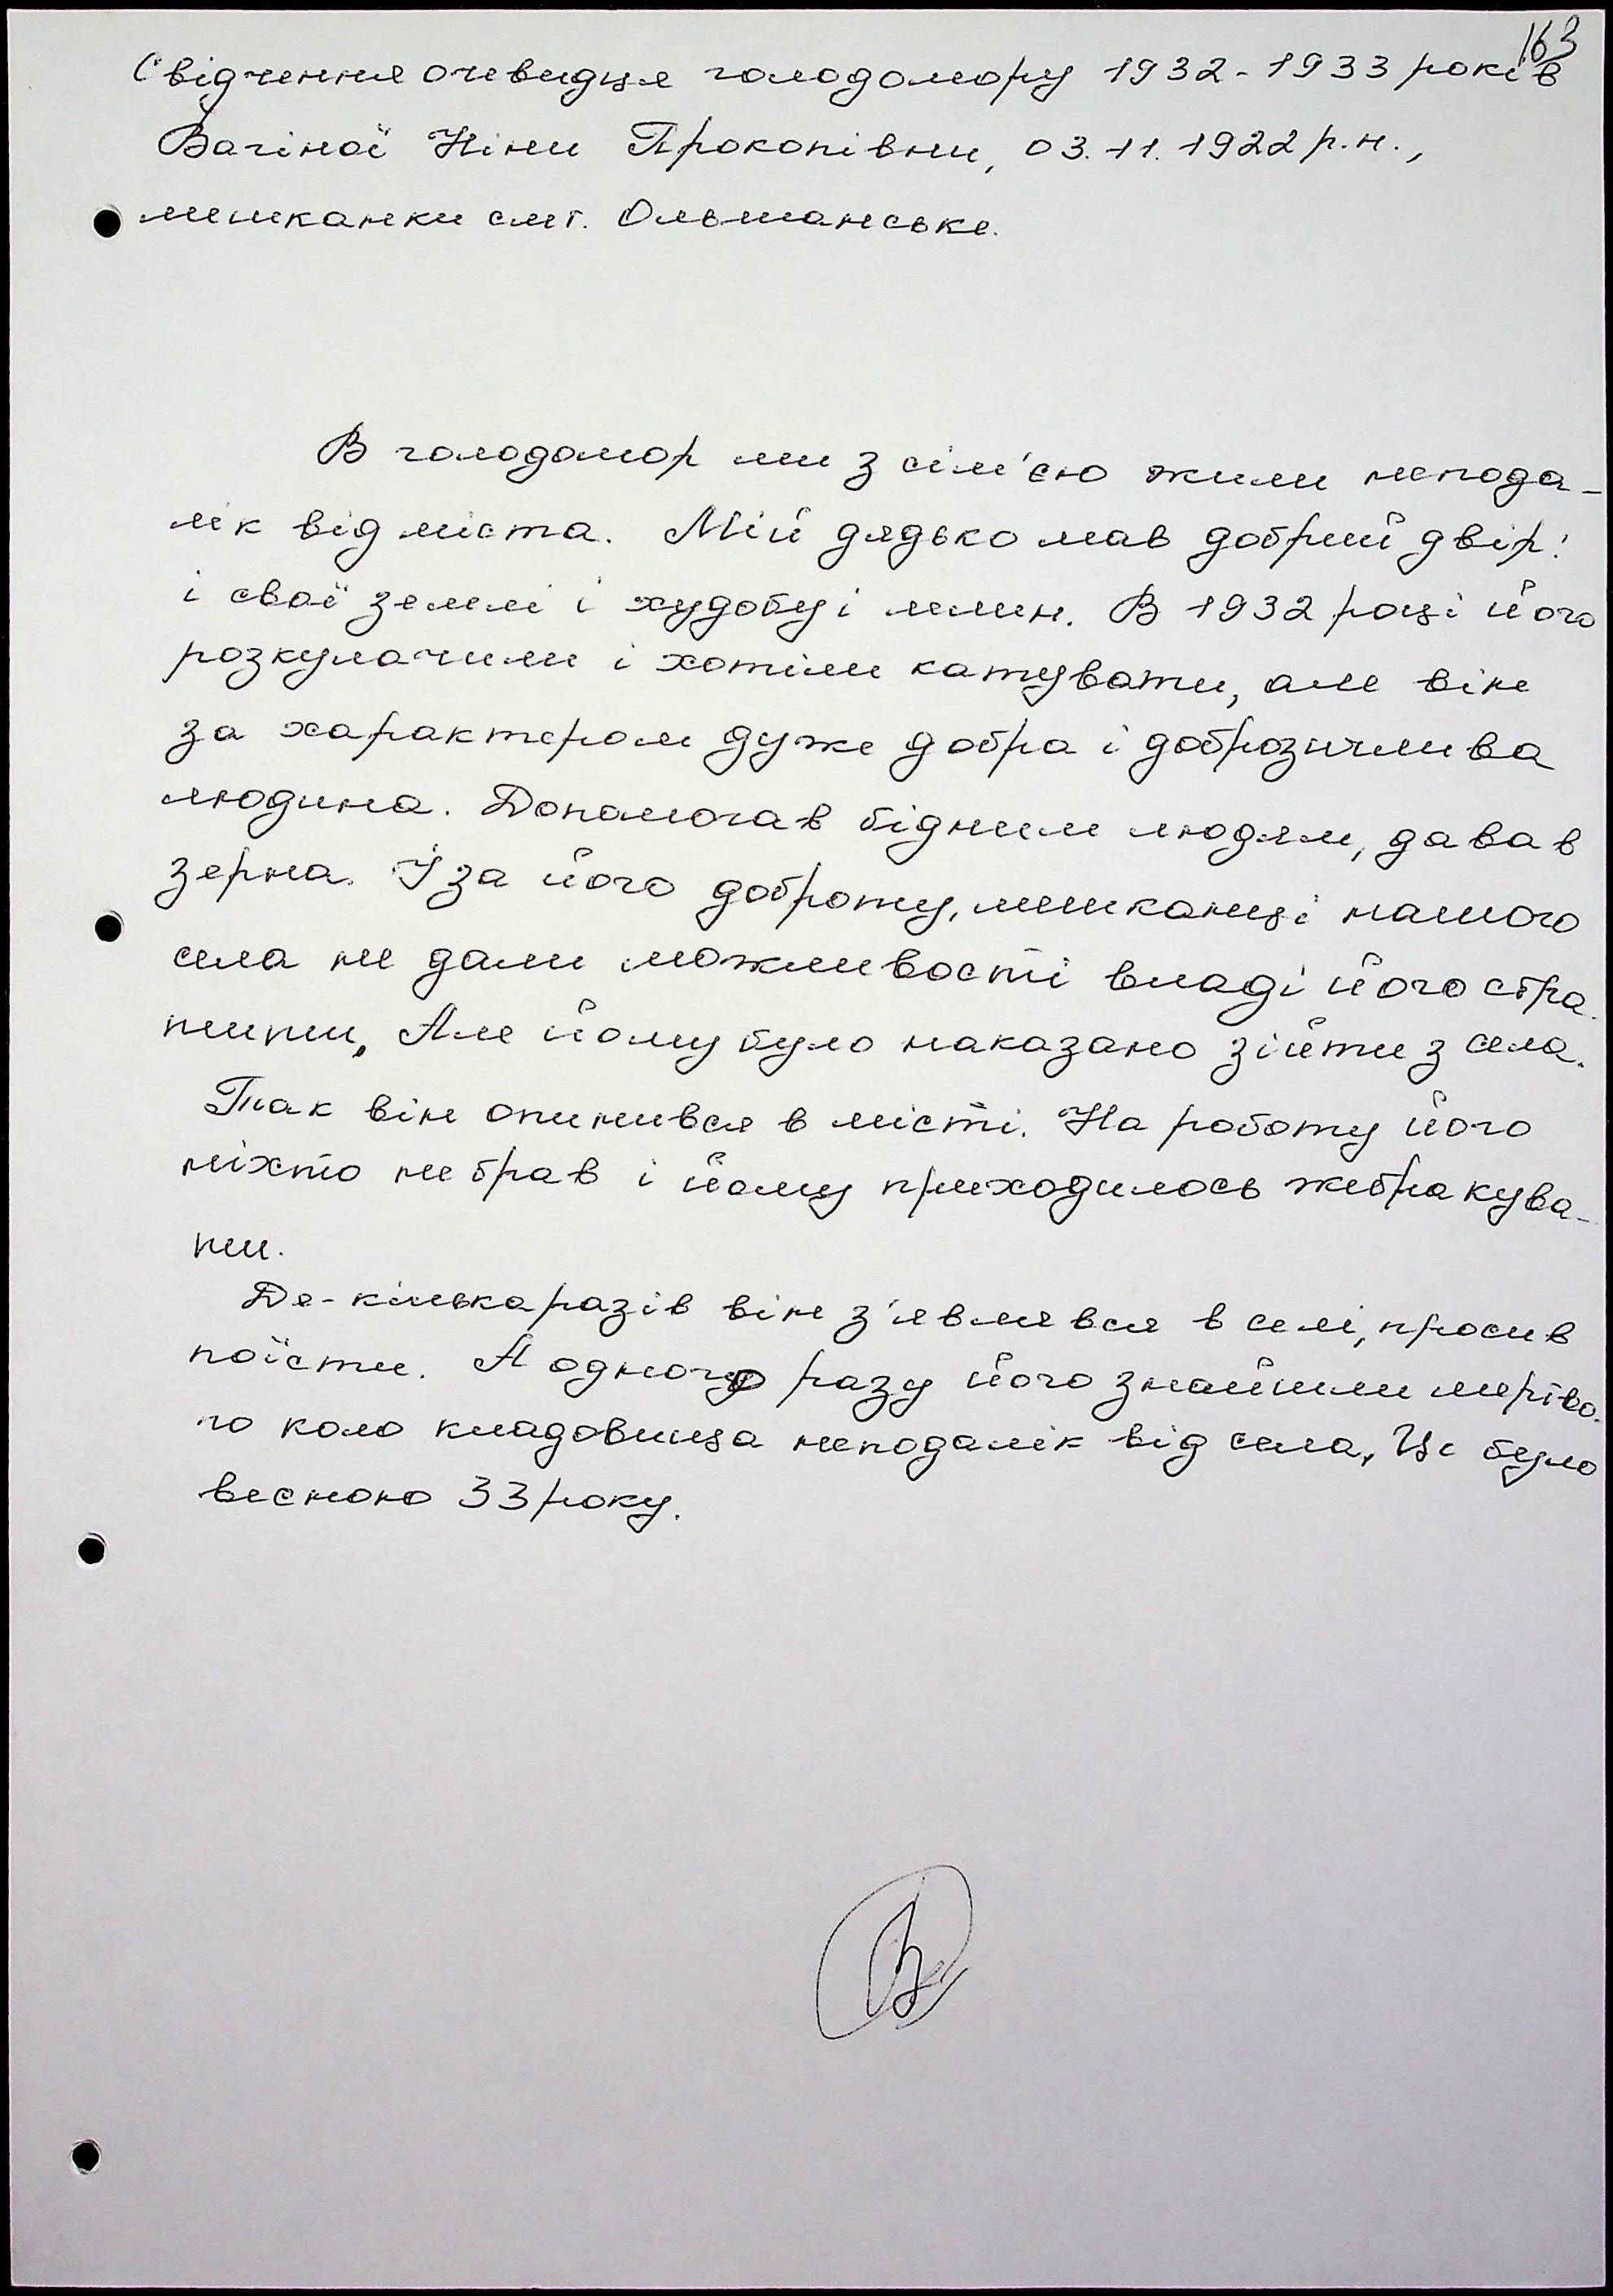 163
Свідчення очевидця голодомору 1932-1933 років
Вагіної Ніни Прокопівни, 03.11.1922 р.н.,
мешканки смт. Ольшанське.
В голодомор ми з сім'єю жили непода-
лік від міста. Мій дядько мав добрий двір:
і свої землі і худобу і млин. В 1932 році його
розкулачили і хотіли катувати, але він
за характером дуже добра і доброзичлива
людина. Допомагав бідним людям, давав
зерна. І за його доброту, мешканці нашого
села не дали можливості владі його стра-
тити. Але йому було наказано зійти з села.
Так він опинився в місті. На роботу його
ніхто не брав і йому приходилось жебракува-
ти.
Де-кілька разів він з'являвся в селі, просив
поїсти. А одного разу його знайшли мертво-
го коло кладовища неподалік від села. Це було
весною 33 року.